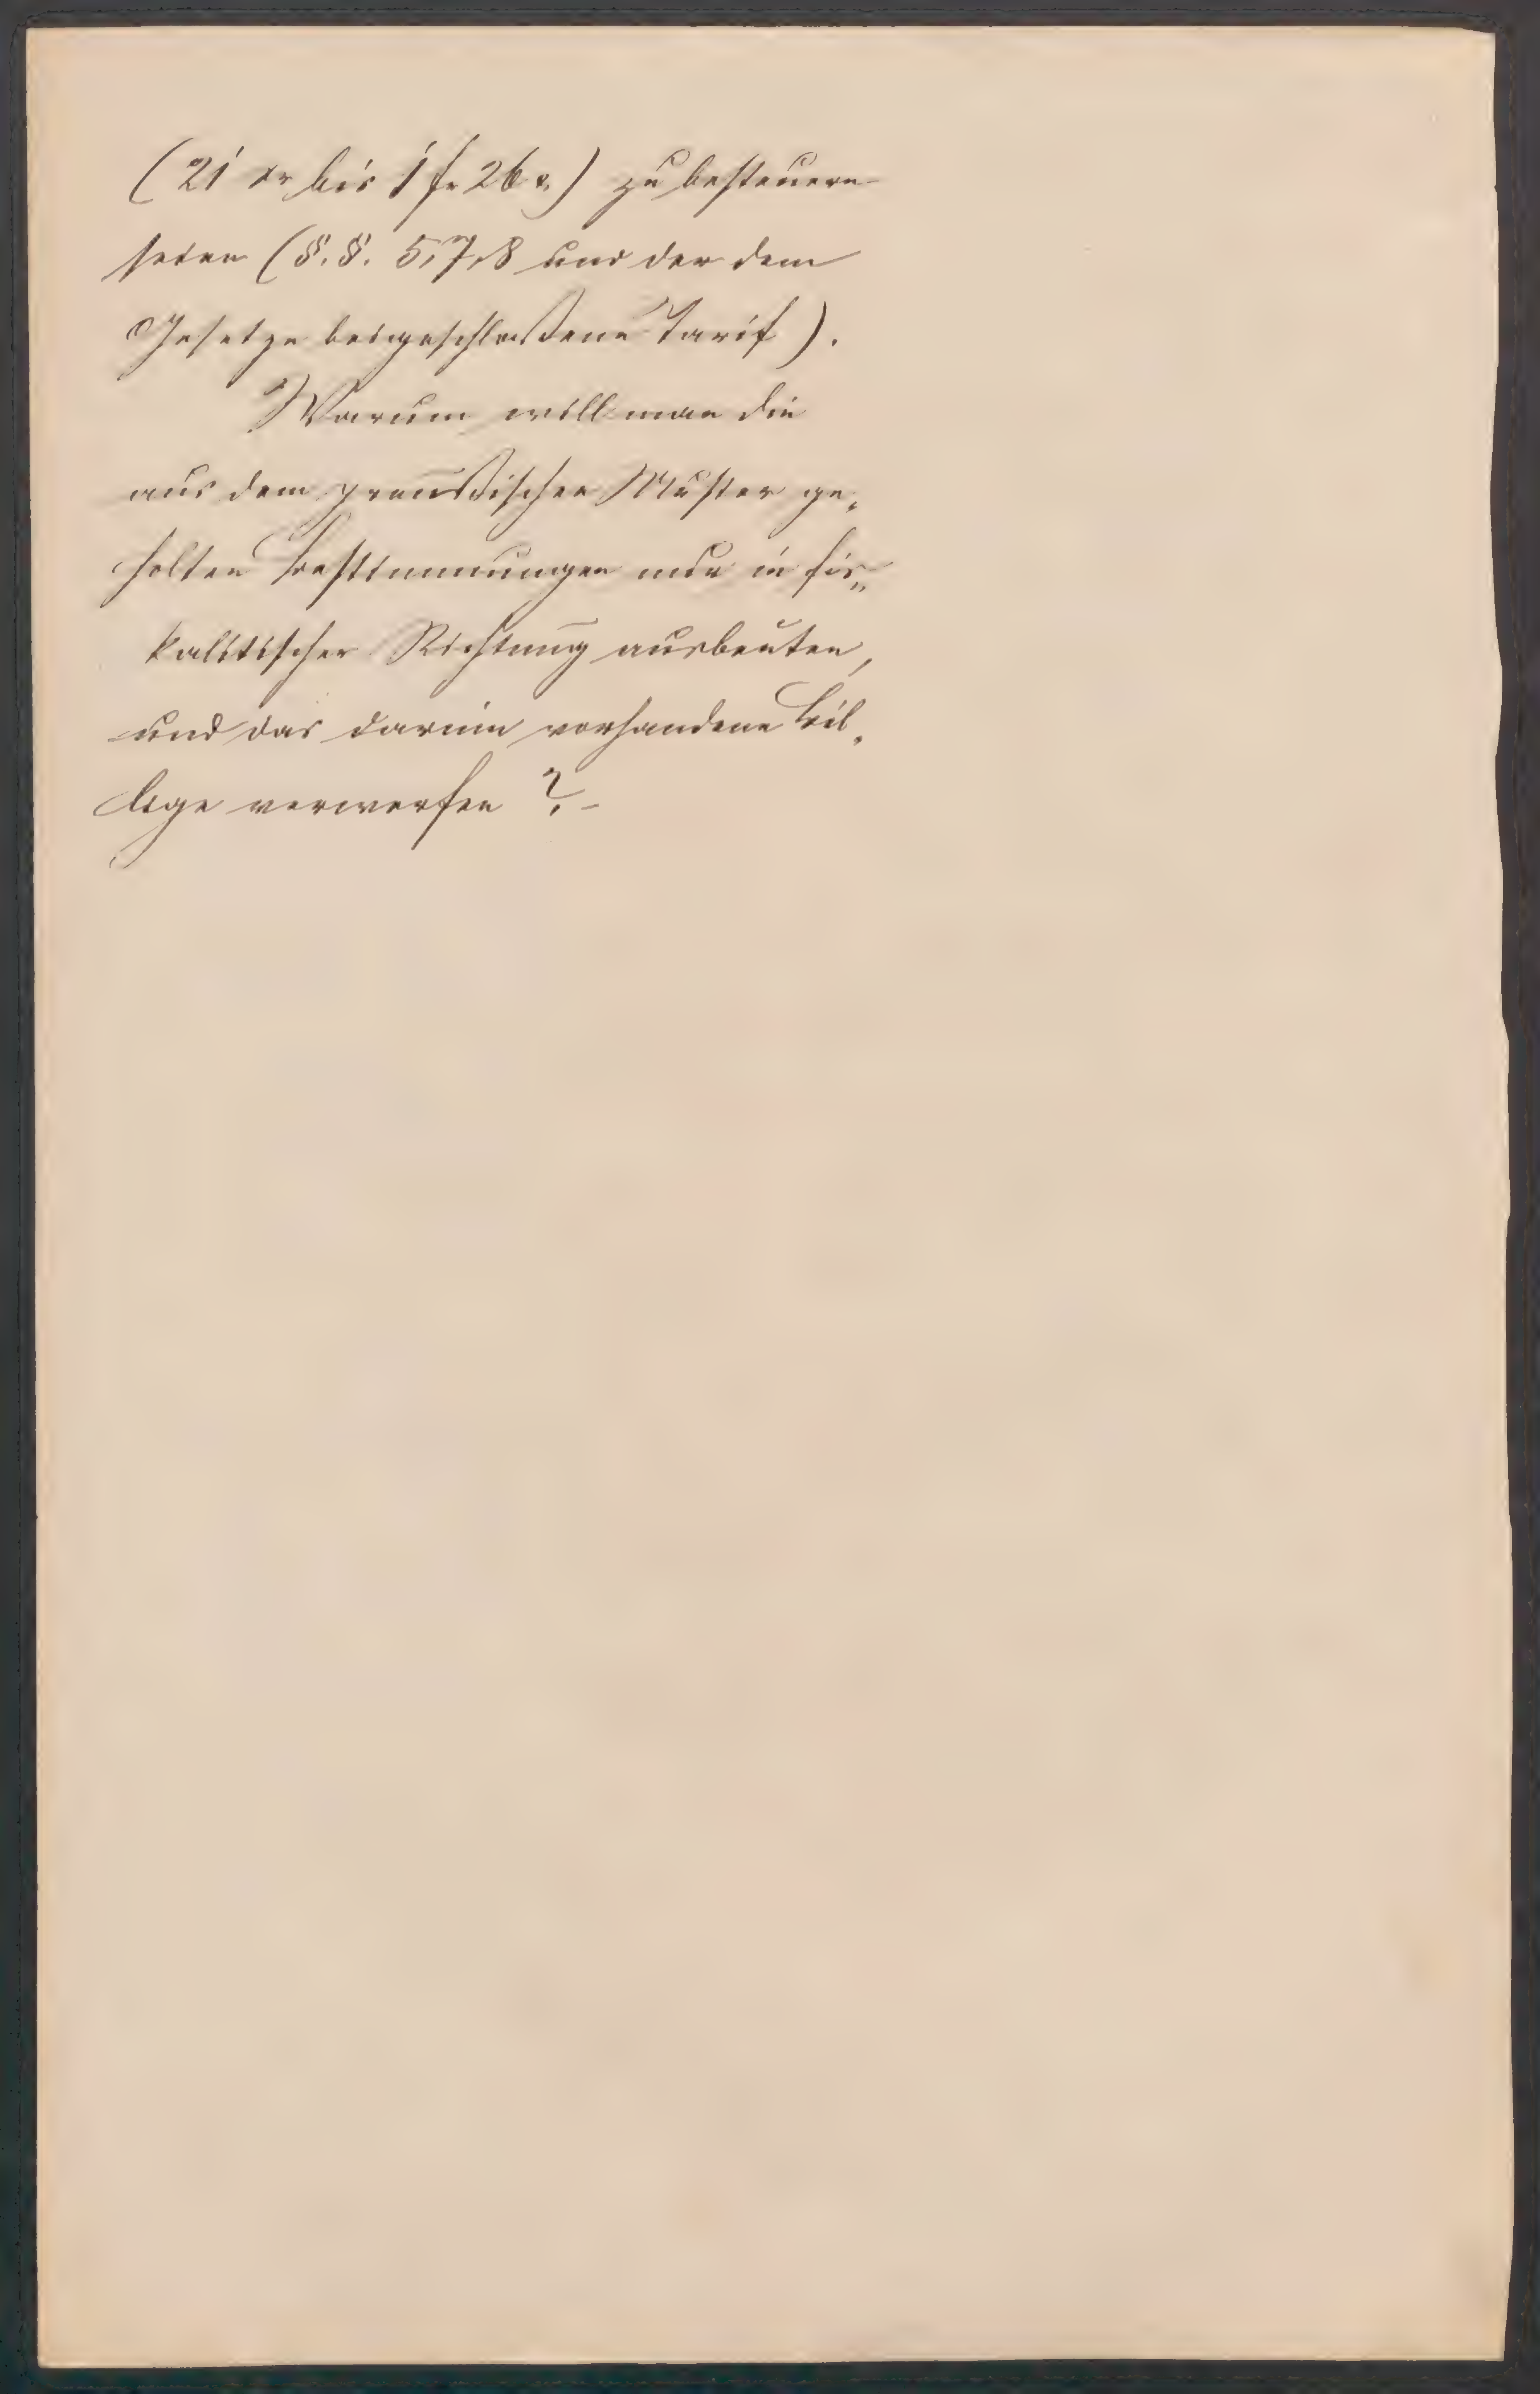 (21 xr bis 1 fr 26 x.) zu besteuern
seien (§.§. 5,7,8 und der dem
Gesetze beigeschloßene Tarif).
Warum will man die
aus dem preussischen Muster ge„
holten Bestimmungen nur in fis„
kalitischer Richtung ausbeuten,
und das darinn vorhandene Bil„
lige verwerfen ?. –